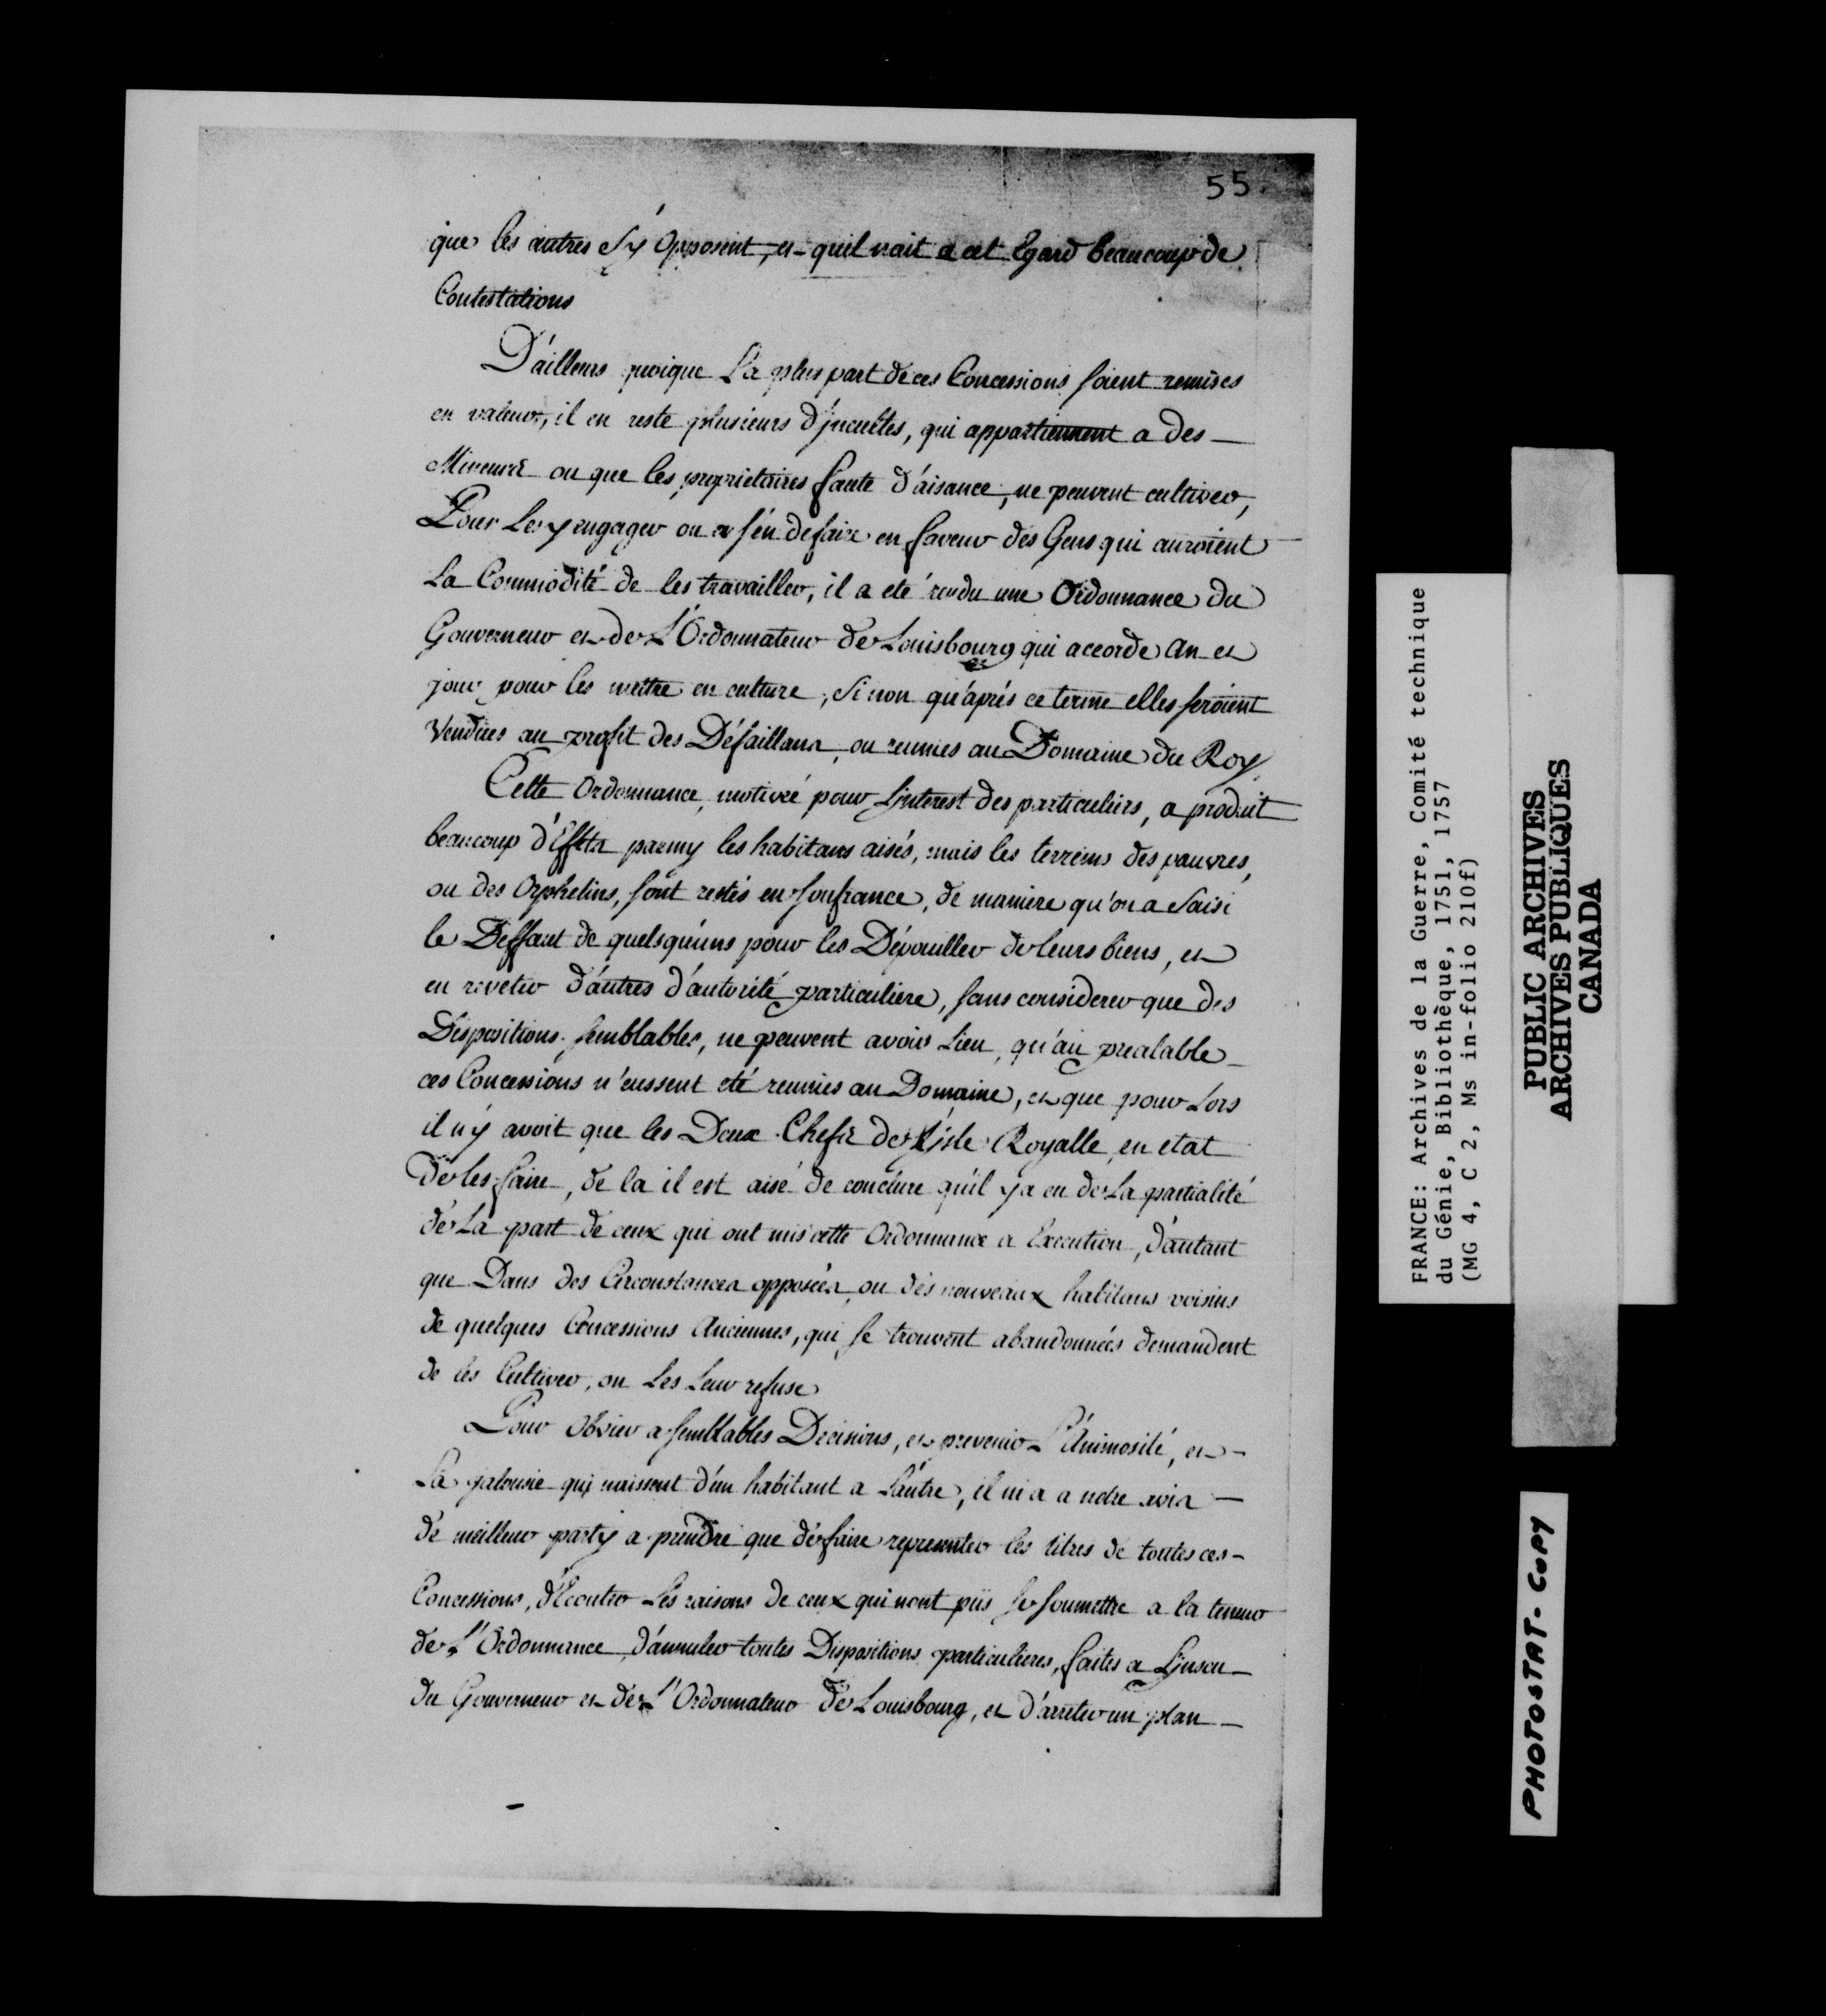 55.
que les autres s'y opposent, et quil nait a cet Egard beaucoup de
Contestations
D'ailleurs quoique La plus part de ces Concessions soient remises
en valeur, il en reste plusieurs d'jncultes, qui appartiennent a des
Mineurs ou que les proprietaires faute d'aisance, ne peuvent cultiver,
Pour Les y engager ou a s'en defaire en faveur des Gens qui auroient
La Commodité de les travailler, il a eté rendu une Ordonnance du
Gouverneur et de L'Ordonnateur de Louisbourg qui accorde An et
jour pour les mettre en culture, Si non qu'aprés ce terme elles seroient
Vendues au profit des Défaillans, ou reunies au Domaine du Roy.
Cette Ordonnance, motivée pour L'jnterest des particuliers, a produit
beaucoup d'Effets parmy les habitans aisés, mais les terreins des pauvres,
ou des Orphelins, sont restés en soufrance, de maniere qu'on a Saisi
le Deffaut de quelsqu'uns pour les Dépouiller de leurs biens, et
en revetir d'autres d'autorité particuliere, sans considerer que des
Dispositions semblables, ne peuvent avoir Lieu, qu'au prealable
ces Concessions n'eussent eté reunies au Domaine, et que pour Lors
il n'y avoit que les Deux Chefs de L'jsle Royalle, en etat
de les faire, de la il est aisé de conclure qu'il y a eu de La partialité
de La part de ceux qui ont mis cette Ordonnance a Execution, d'autant
que Dans des Circonstances opposées, ou des nouveaux habitans voisins
de quelques Concessions Anciennes, qui se trouvent abandonnées demandent
de les Cultiver, on Les Leur refuse
Pour Obvier a semblables Decisions, et prevenir L'Animosité, et
La jalousie qui naissent d'un habitant a L'autre, il ni a a notre avis
de meilleur party a prendre que de faire representer les titres de toutes ces
Concessions, d'Ecouter Les raisons de ceux qui nont pûs se soumettre a la teneur
de L'Ordonnance, d'annuler toutes Dispositions particulieres, faites a L'jnsçu
du Gouverneur et de L'Ordonnateur de Louisbourg, et d'arreter un plan
FRANCE: Archives de la Guerre, Comité technique
du Génie, Bibliothèque, 1751, 1757
(MG 4, C 2, Ms in-folio 210f)
PUBLIC ARCHIVES
ARCHIVES PUBLIQUES
CANADA
PHOTOSTAT-COPY